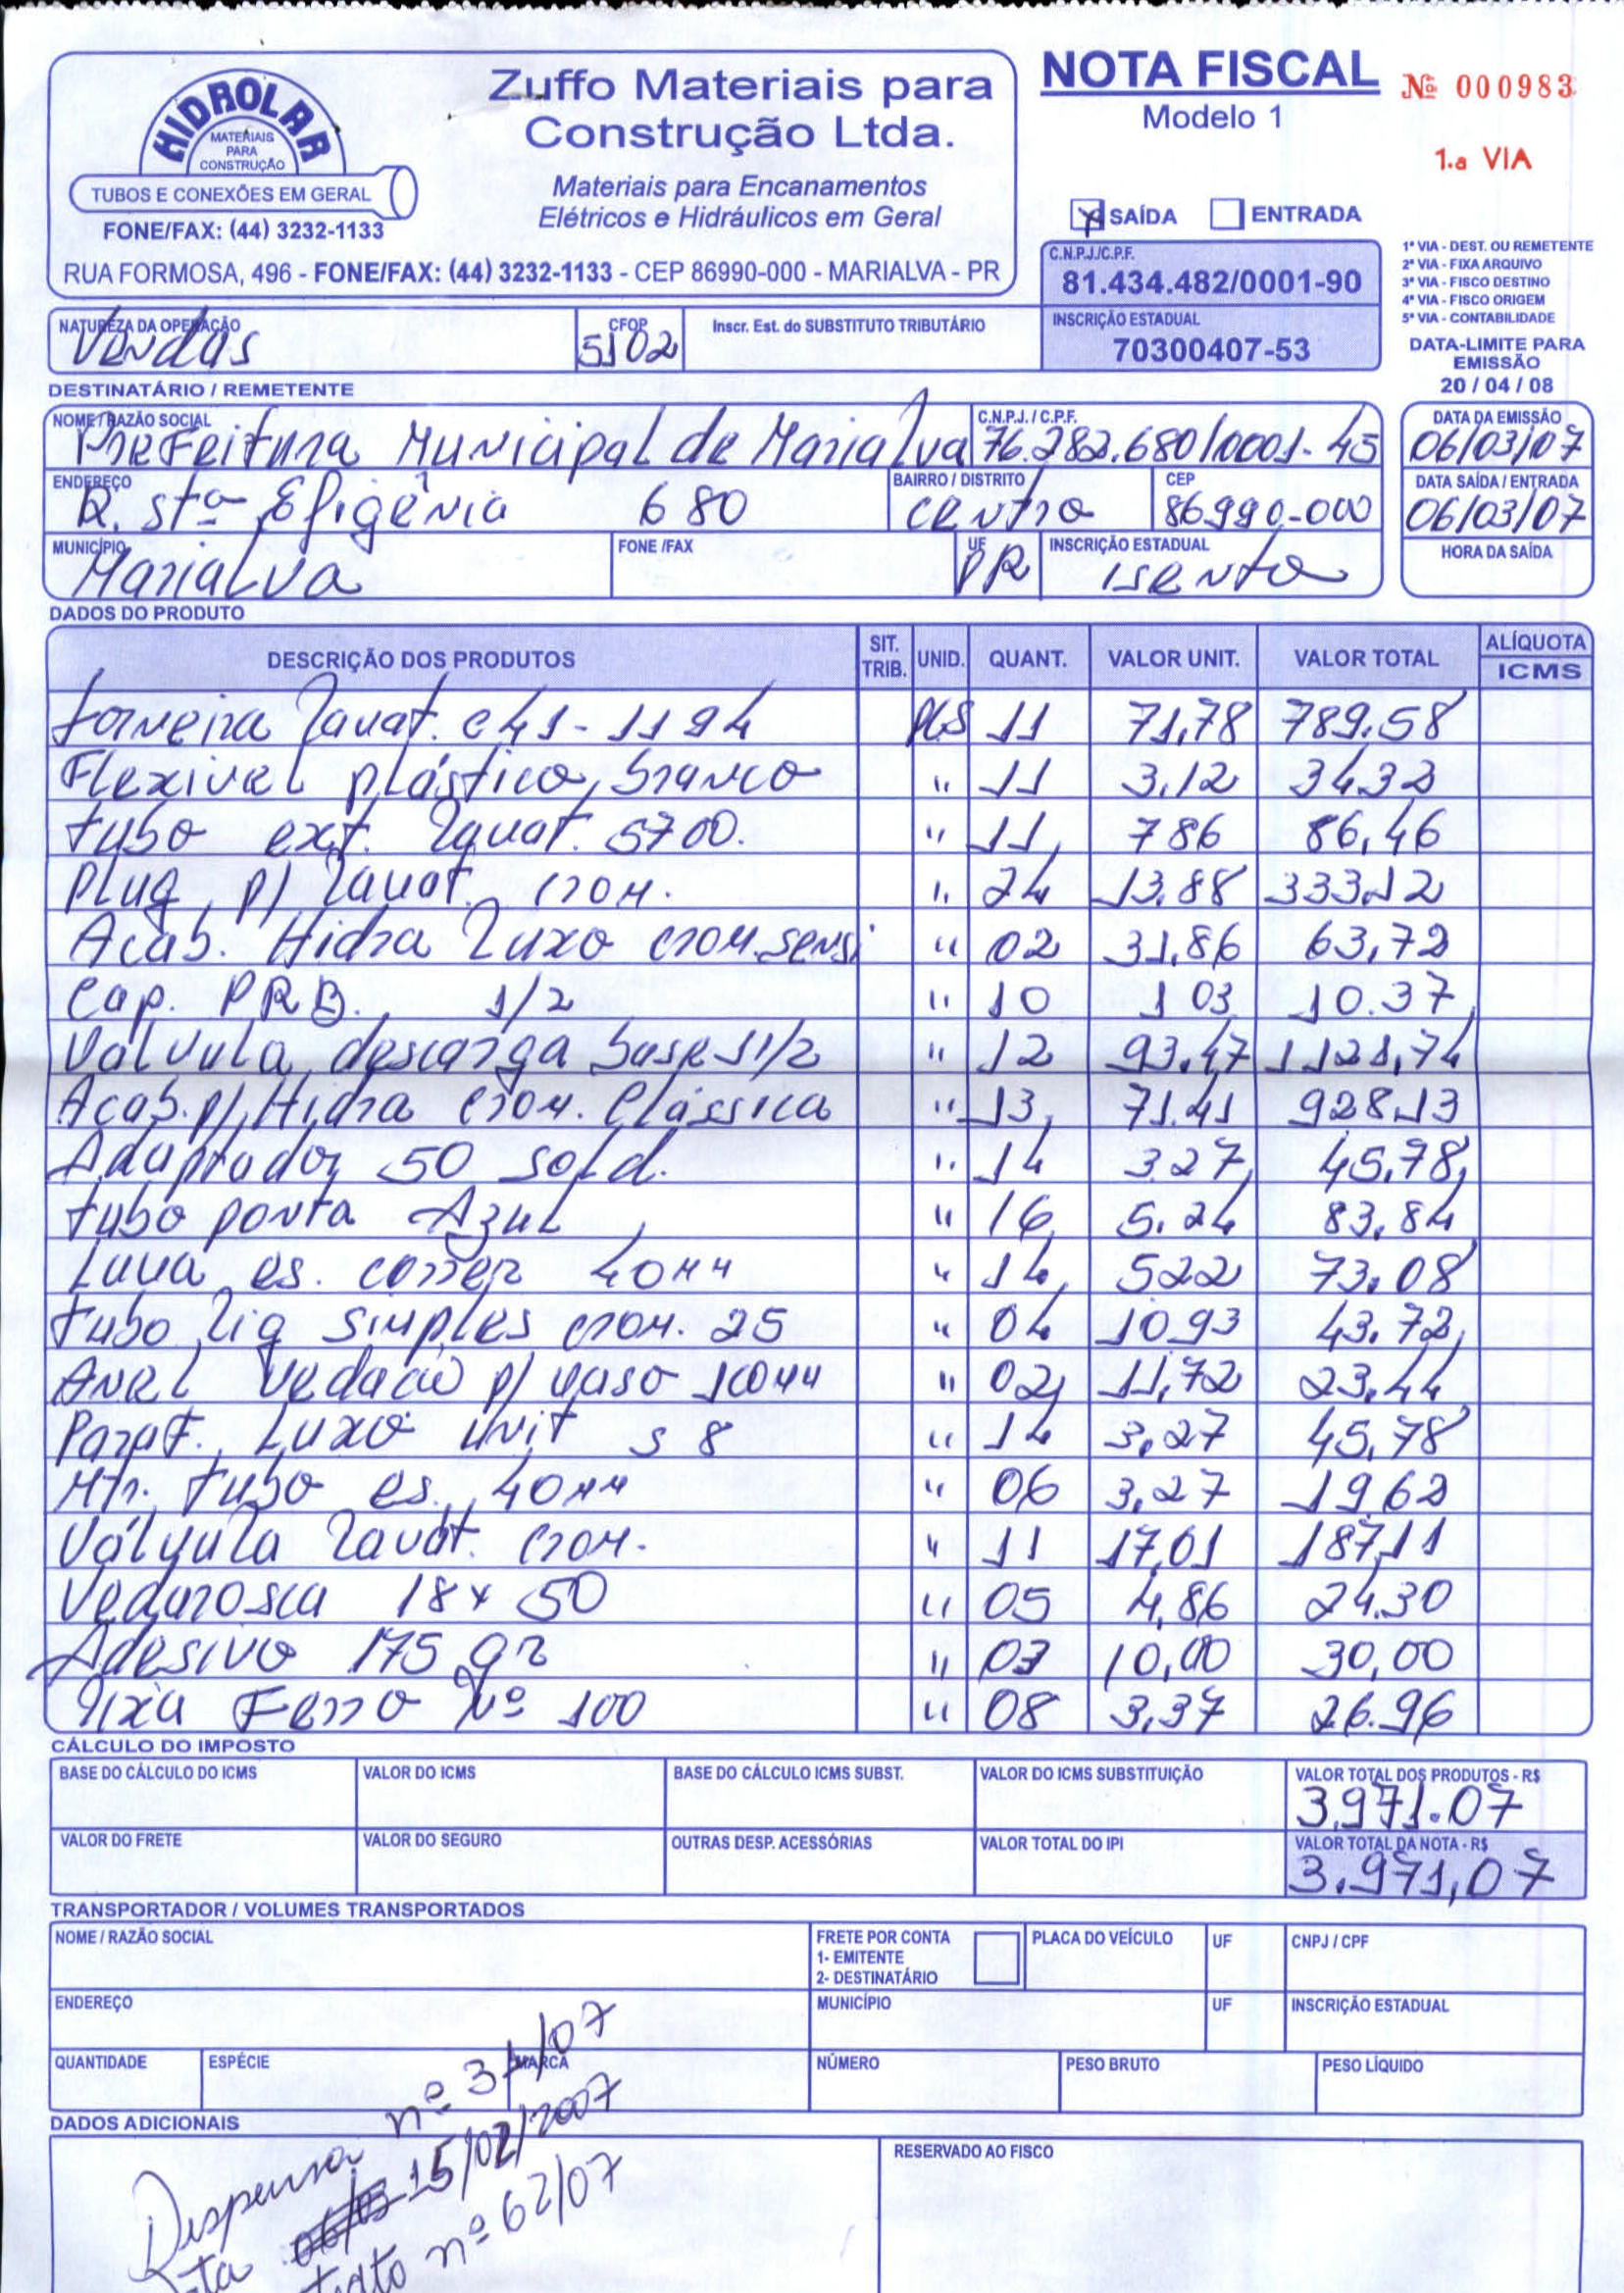 HIDROLAR
MATERIAIS
PARA
CONSTRUÇÃO
TUBOS E CONEXÕES EM GERAL
FONE/FAX: (44) 3232-1133
Zuffo Materiais para
Construção Ltda.
Materiais para Encanamentos
Elétricos e Hidráulicos em Geral
RUA FORMOSA, 496 - FONE/FAX: (44) 3232-1133 - CEP 86990-000 - MARIALVA - PR
NOTA FISCAL
Modelo 1
Nº 000983
1.a VIA
X SAÍDA ENTRADA
C.N.P.J./C.P.F.
81.434.482/0001-90
INSCRIÇÃO ESTADUAL
70300407-53
1ª VIA - DEST. OU REMETENTE
2ª VIA - FIXA ARQUIVO
3ª VIA - FISCO DESTINO
4ª VIA - FISCO ORIGEM
5ª VIA - CONTABILIDADE
DATA-LIMITE PARA
EMISSÃO
20 / 04 / 08
NATUREZA DA OPERAÇÃO
Vendas
CFOP
5102
Inscr. Est. do SUBSTITUTO TRIBUTÁRIO
DESTINATÁRIO / REMETENTE
NOME / RAZÃO SOCIAL
Prefeitura Municipal de Marialva
C.N.P.J. / C.P.F.
76.282.680/0001-45
DATA DA EMISSÃO
06/03/07
ENDEREÇO
R. stª Efigênia 680
BAIRRO / DISTRITO
centro
CEP
86990-000
DATA SAÍDA / ENTRADA
06/03/07
MUNICÍPIO
Marialva
FONE /FAX
UF
PR
INSCRIÇÃO ESTADUAL
isento
HORA DA SAÍDA
DADOS DO PRODUTO
DESCRIÇÃO DOS PRODUTOS SIT. TRIB. UNID. QUANT. VALOR UNIT. VALOR TOTAL ALÍQUOTA ICMS
torneira lavat. c41-1194 pçs 11 71,78 789.58
Flexivel plástico branco " 11 3,12 34,32
tubo ext. lavat. 5700. " 11 786 86,46
Plug p/ lavat. crom. " 24 13.88 333.12
Acab. Hidra Luxo crom.sensi " 02 31,86 63,72
Cap. PRB. 1/2 " 10 1 03 10.37
Válvula descarga base 11/2 " 12 93.47 1.121,74
Acab. p/ Hidra crom. Clássica " 13 71.41 928.13
Adaptador 50 sold. " 14 3.27 45,78
tubo ponta Azul " 16 5.24 83,84
Luva es. correr 40mm " 14 522 73.08
tubo lig simples crom. 25 " 04 10.93 43.72
Anel vedacão p/ vaso 100mm " 02 11,72 23,44
Paraf. Luxo unit s 8 " 14 3,27 45,78
Mtr. tubo es. 40mm " 06 3,27 1962
Válvula lavat. crom. " 11 17,01 187,11
Vedarosca 18x50 " 05 4,86 24.30
Adesivo 175 gr " 03 10,00 30,00
lixa Ferro Nº 100 " 08 3,37 26.96
CÁLCULO DO IMPOSTO
BASE DO CÁLCULO DO ICMS VALOR DO ICMS BASE DO CÁLCULO ICMS SUBST. VALOR DO ICMS SUBSTITUIÇÃO VALOR TOTAL DOS PRODUTOS - R$
3.971.07
VALOR DO FRETE VALOR DO SEGURO OUTRAS DESP. ACESSÓRIAS VALOR TOTAL DO IPI VALOR TOTAL DA NOTA - R$
3.971,07
TRANSPORTADOR / VOLUMES TRANSPORTADOS
NOME / RAZÃO SOCIAL
FRETE POR CONTA
1- EMITENTE
2- DESTINATÁRIO
PLACA DO VEÍCULO UF CNPJ / CPF
ENDEREÇO MUNICÍPIO UF INSCRIÇÃO ESTADUAL
QUANTIDADE ESPÉCIE MARCA NÚMERO PESO BRUTO PESO LÍQUIDO
DADOS ADICIONAIS
RESERVADO AO FISCO
Dispensa nº /07
15/02/2007
nº 62/07